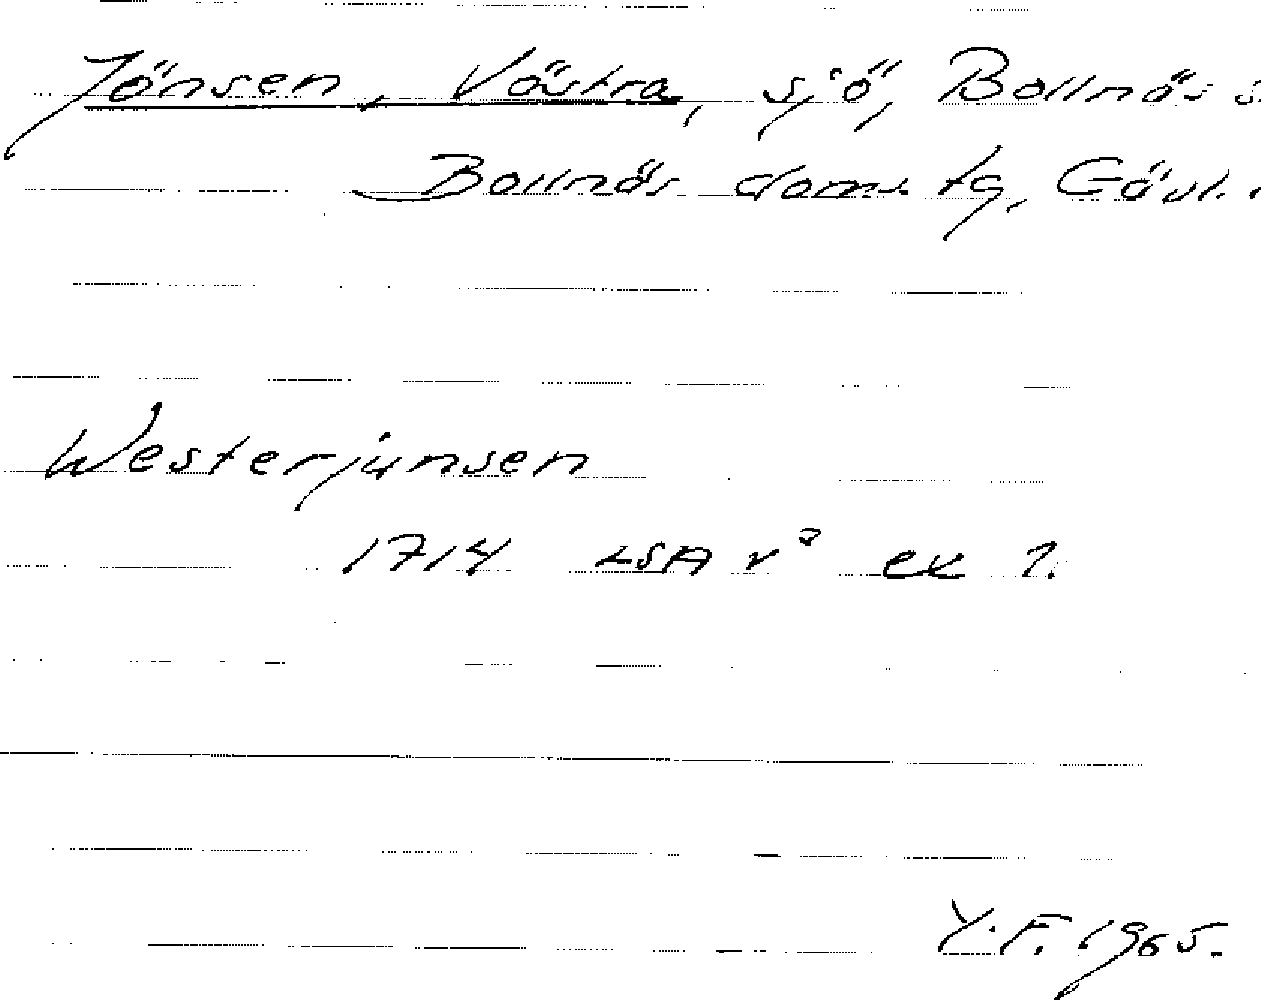 Jönsen, Västra, sjö, Bollnäs s
Bollnäs doms. tg, Gävl.
Westerjünsen
1714 LSA v² ex 1.
Y.F. 1965.